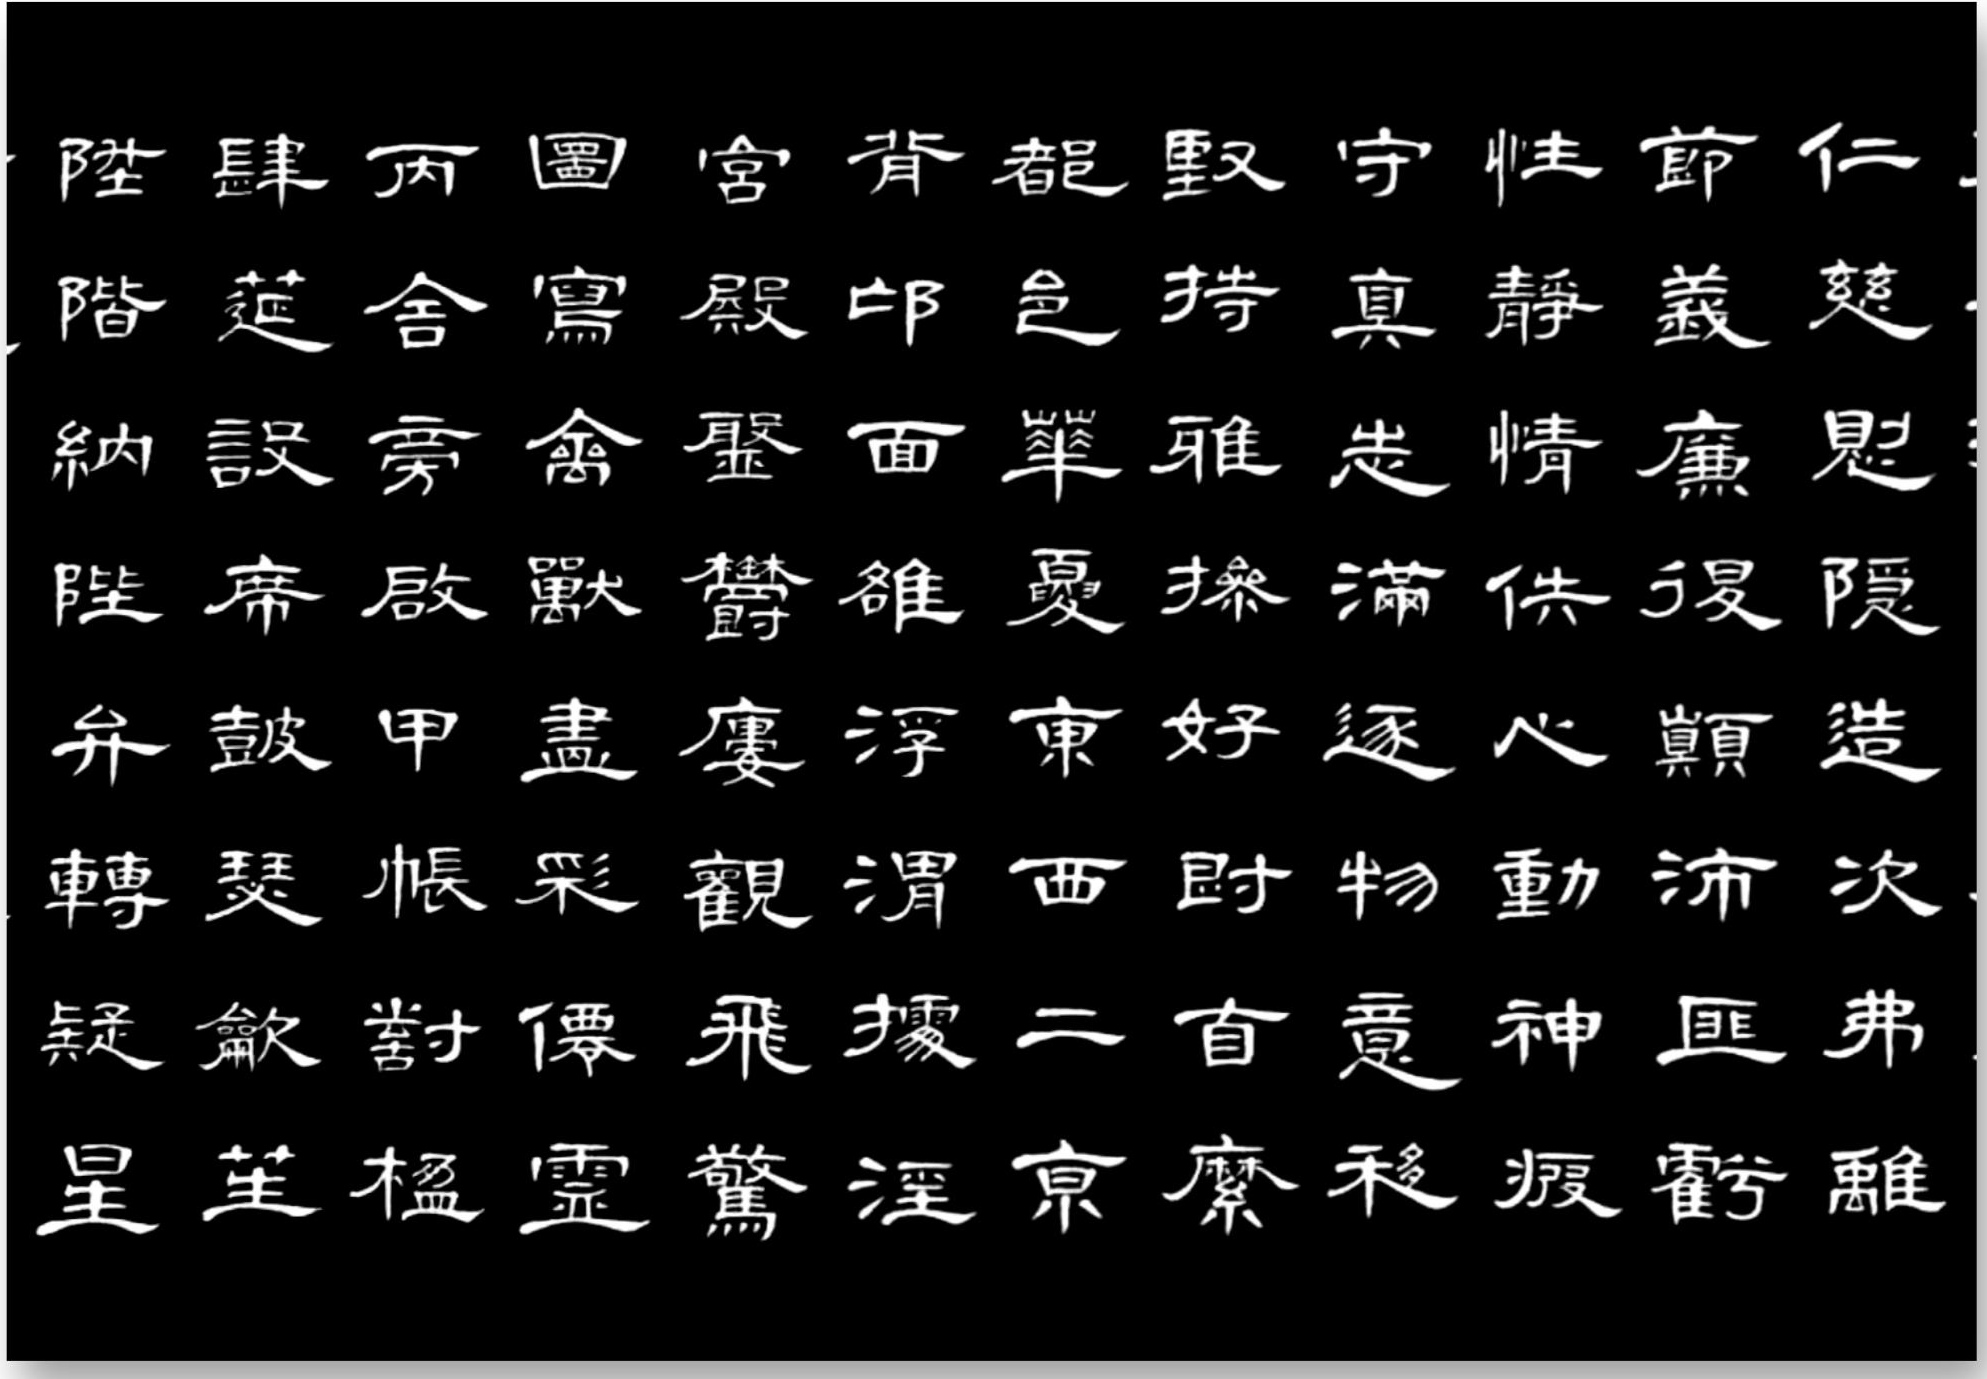 仁慈惻隱造次弗離
節義廉退顛沛匪虧
性靜情佚心動神疲
守真志滿逐物意移
堅持雅操好爵自縻
都邑華夏東西二京
背邙面雒浮渭據涇
宮殿盤鬱樓觀飛驚
圖寫禽獸畫彩僊靈
丙舍旁啟甲帳對楹
肆筵設席鼓瑟龡笙
陞階納陛弁轉疑星